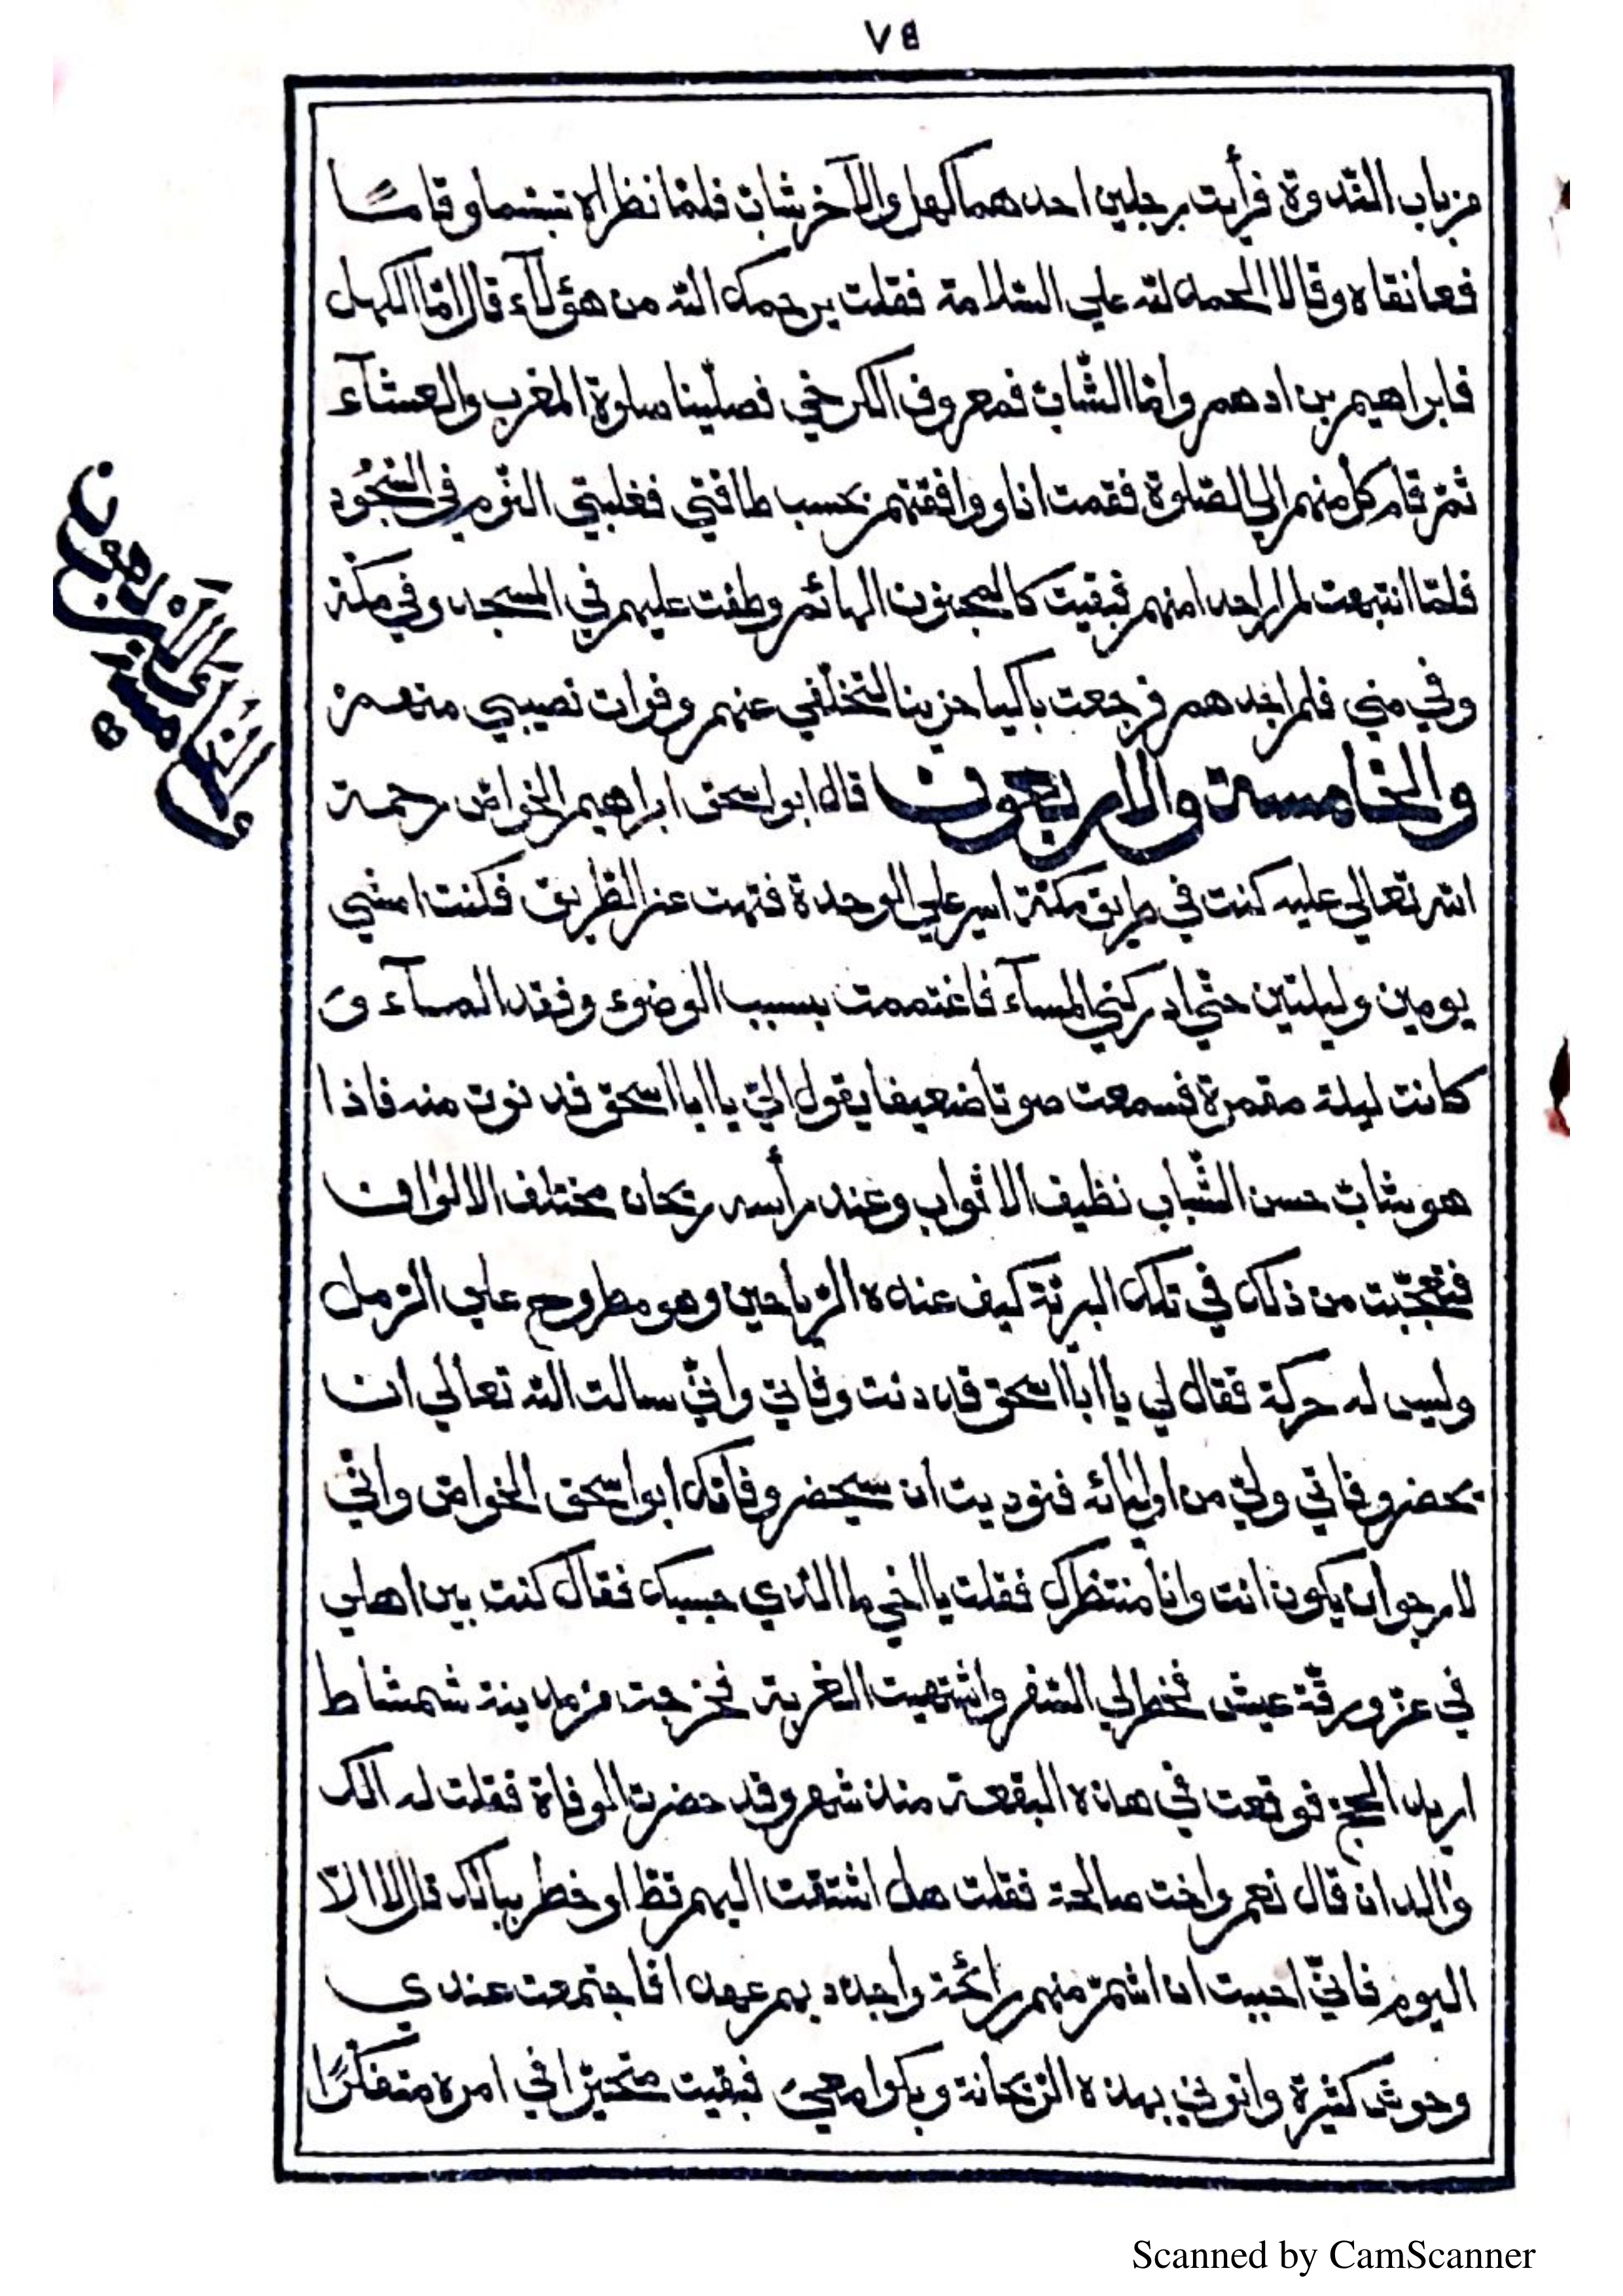 ٧٥
من باب الندوة فرأيت رجلين احدهما كهل والآخر شابّ فلمّا نظراه تبسّما وقاما
فعانقاه وقالا الحمد لله علي السّلامة فقلت يرحمك الله من هؤلآء قال امّا الكهل
فابراهيم بن ادهم وامّا الشّابّ فمعروف الكرخي فصلّينا صلوة المغرب والعشآء
ثمّ قام كلّ منهم الي الصّلوة فقمت انا ووافقتهم بحسب طاقتي فغلبني النّوم في السّجُود
فلمّا انتبهت لم ار احدا منهم فبقيت كالمجنون الهائم وطفت عليهم في المسجد وفي مكّة
وفي مني فلم اجدهم فرجعت باكيا حزينا لتخلّفي عنهم وفوات نصيبي منهم
والخامسة والاربعون قال ابو اسحق ابراهيم الخواص رحمة
الله تعالي عليه كنت في طريق مكّة اسير علي الوحدة فتهت عن الطّريق فكنت امشي
يومين وليلتين حتّي ادركني المسآء فاغتممت بسبب الوضوء وفقد المآء و
كانت ليلة مقمرة فسمعت صوتا ضعيفا يقول اليّ يا ابا اسحق فدنوت منه فاذا
هو شابّ حسن الشّباب نظيف الاثواب وعند رأسه ريحان مختلف الالوان
فتعجّبت من ذلك في تلك البريّة كيف عنده الرّياحين وهو مطروح علي الرّمل
وليس له حركة فقال لي يا ابا اسحق قد دنت وفاتي وانّي سالت الله تعالي ان
يحضر وفاتي وليّ من اوليائه فنوديت ان سيحضر وفاتك ابو اسحق الخواص وانّي
لارجو ان يكون انت وانا منتظرك فقلت يا اخي ما الذي حبسك فقال كنت بين اهلي
في عزّ ورقّة عيش فخطر لي السّفر واشتهيت الغربة فخرجت من مدينة شمشاط
اريد الحجّ فوقعت في هذه البقعة منذ شهر وقد حضرت الوفاة فقلت له الك
والدان قال نعم واخت صالحة فقلت هل اشتقت اليهم قطّ او خطر ببالك قال لا الّا
اليوم فانّي احببت ان اشمّ منهم رائحة واجدد بهم عهدا فاجتمعت عندي
وحوش كثيرة واتوني بهذه الرّيحانة وبكوا معي فبقيت متحيّرا في امره متفكّرًا
Scanned by CamScanner